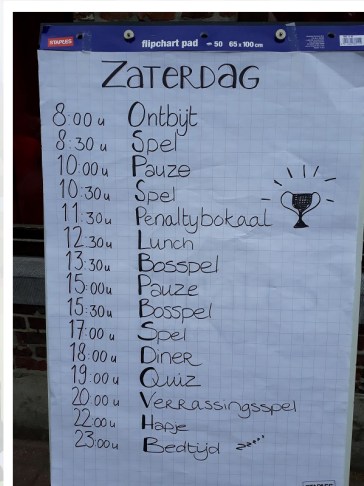 STAPLES flipchart pad 50 65 x 100 cm
ZATERDAG
8:00 u Ontbijt
8:30 u Spel
10:00u Pauze
10:30u Spel
11:30u Penaltybokaal
12.30u Lunch
13:30u Bosspel
15:00u Pauze
15:30u Bosspel
17:00 u Spel
18:00 u Diner
19:00 u Quiz
20.00 u Verrassingsspel
22:00u Hapje
23:00u Bedtijd